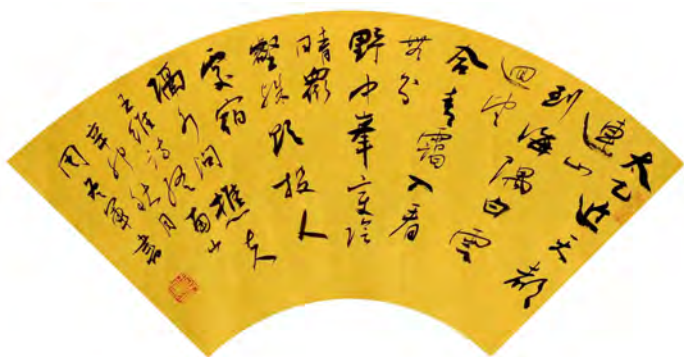 太乙近天都
連山
到海隅白雲
迴望
合青靄入看
無分
野中峯變陰
晴衆
壑殊欲投人
處宿
隔水問樵夫
王維詩終南山
辛卯秋月
周軍書